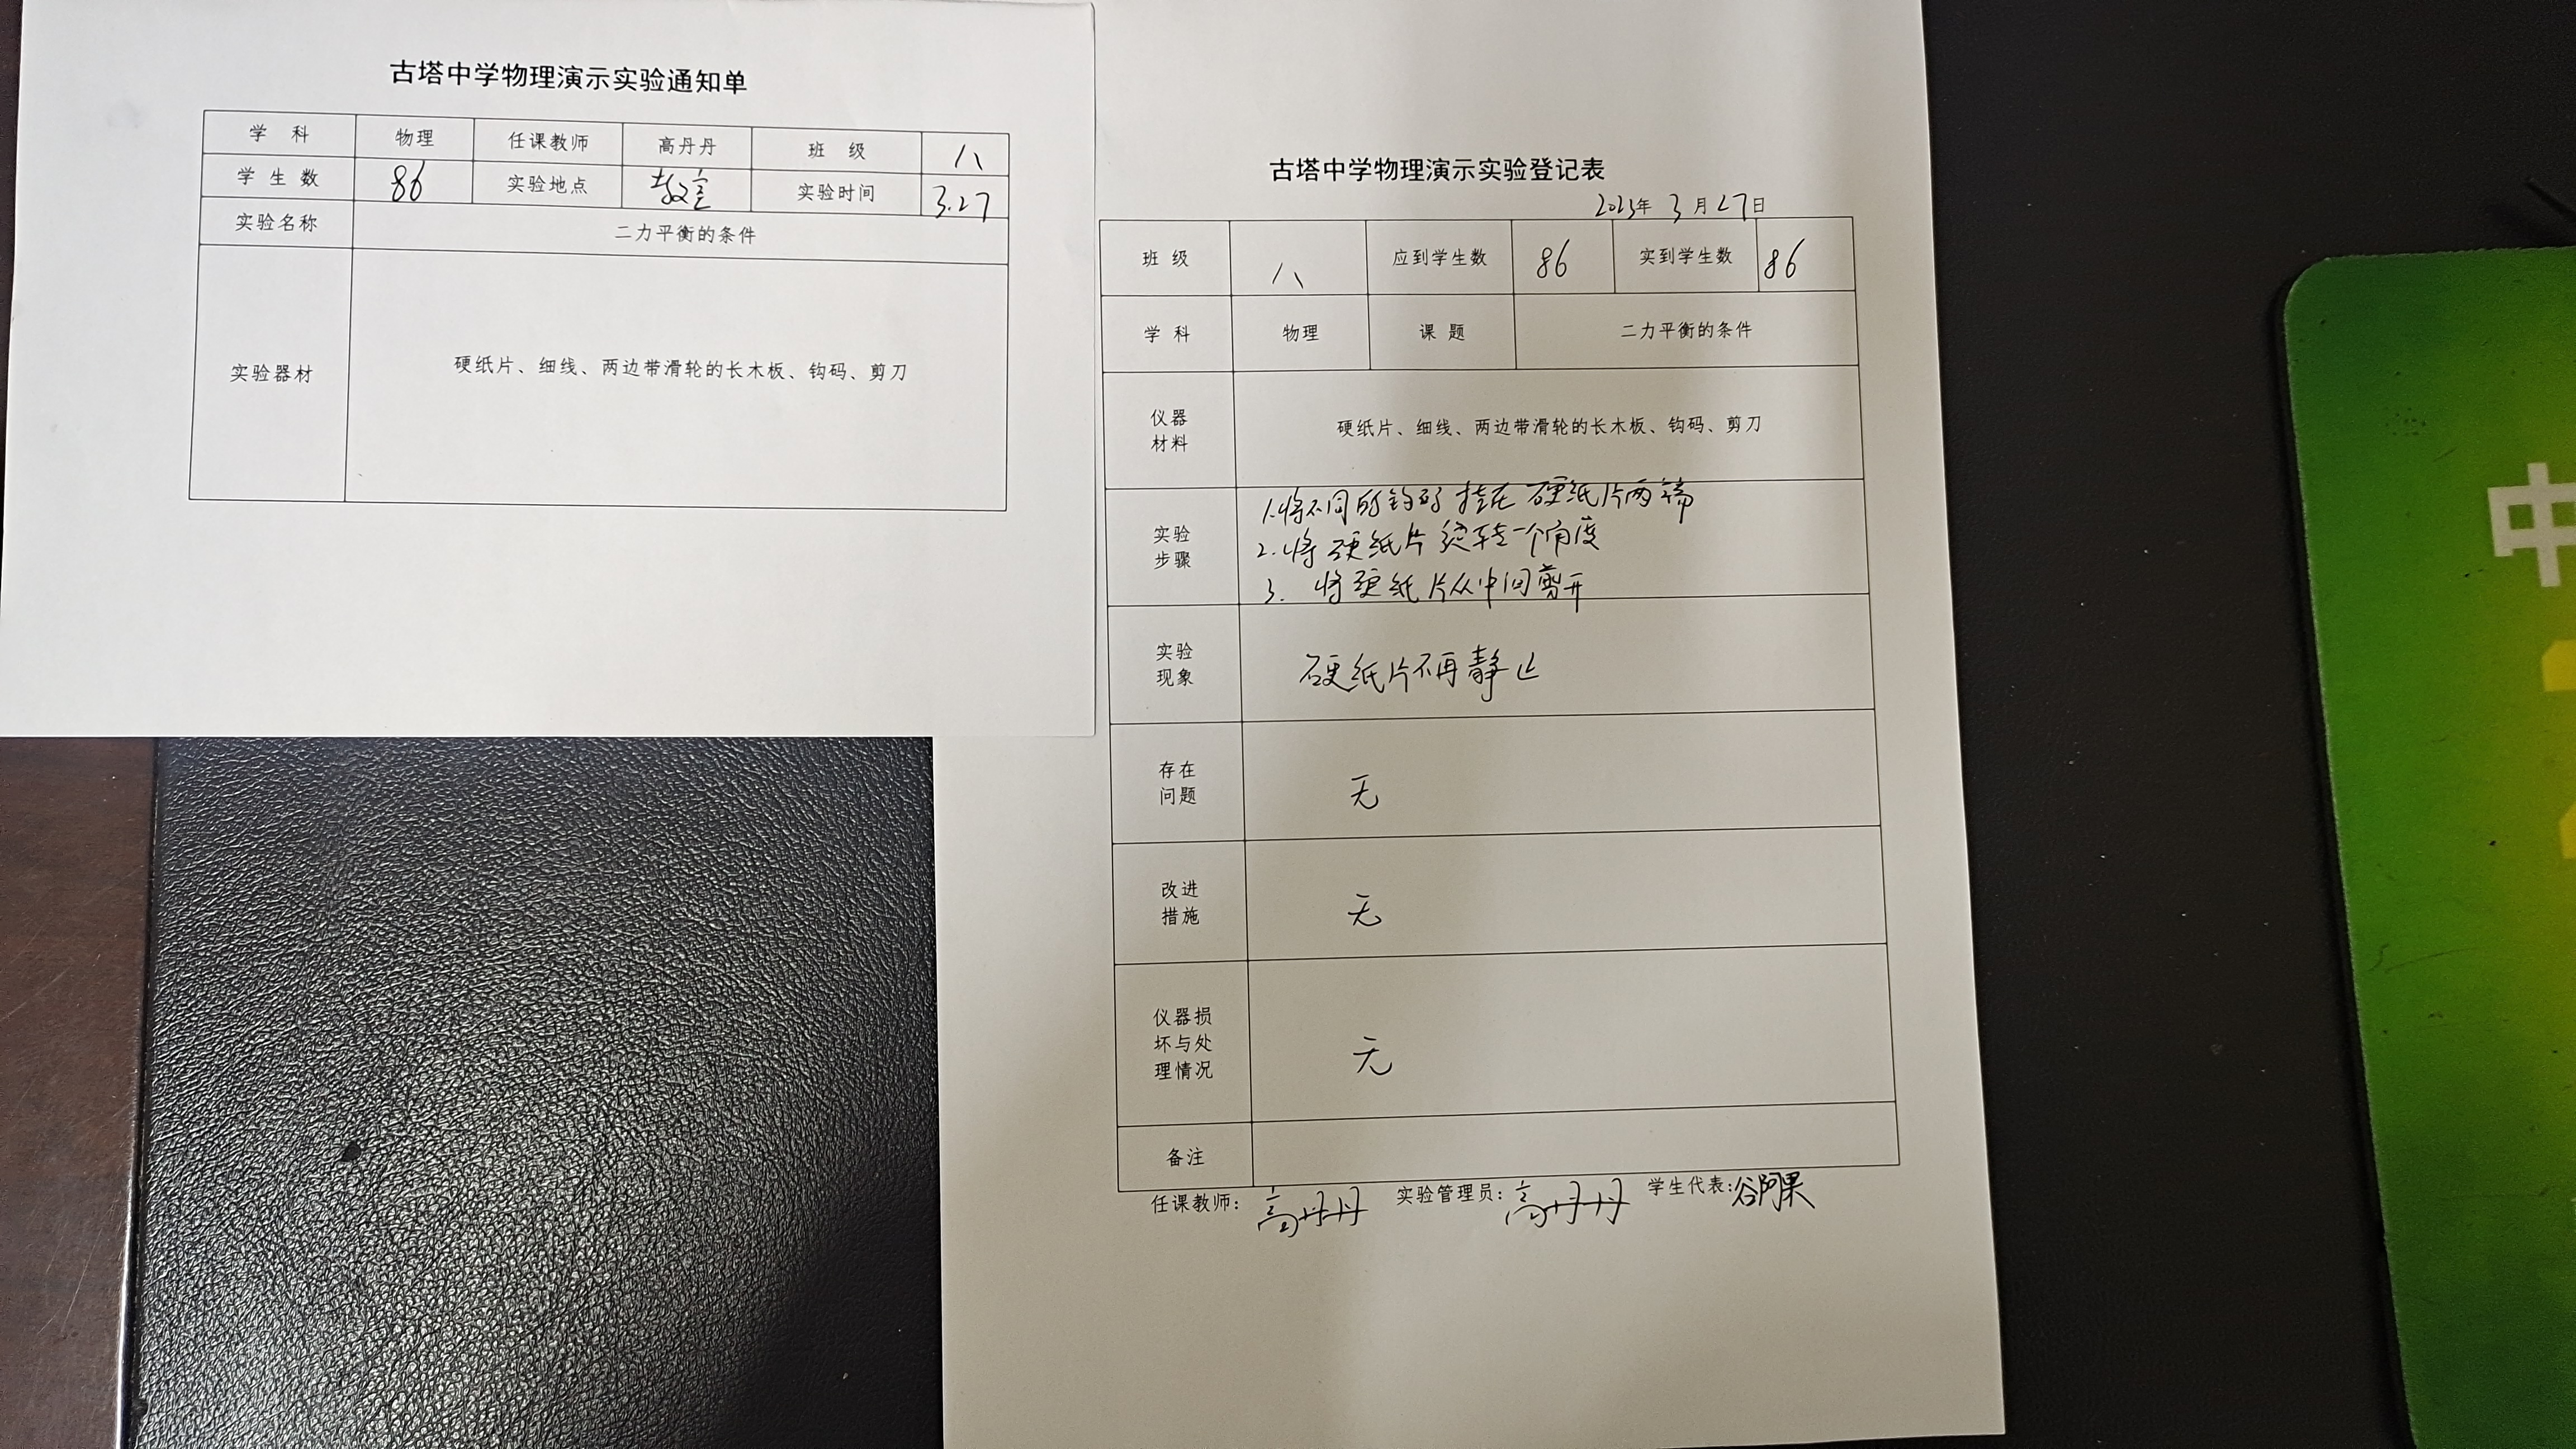 古塔中学物理演示实验通知单
学 科 物理 任课教师 高丹丹 班 级 八
学 生 数 86 实验地点 教室 实验时间 3.27
实验名称 二力平衡的条件
实验器材 硬纸片、细线、两边带滑轮的长木板、钩码、剪刀
古塔中学物理演示实验登记表
2023年 3 月 27日
班 级 八 应到学生数 86 实到学生数 86
学 科 物理 课 题 二力平衡的条件
仪器
材料
硬纸片、细线、两边带滑轮的长木板、钩码、剪刀
实验
步骤
1.将不同的钩码挂在硬纸片两端
2.将硬纸片旋转一个角度
3. 将硬纸片从中间剪开
实验
现象
硬纸片不再静止
存在
问题
无
改进
措施
无
仪器损
坏与处
理情况
无
备注
任课教师：高丹丹 实验管理员：高丹丹 学生代表:谷阿果
中